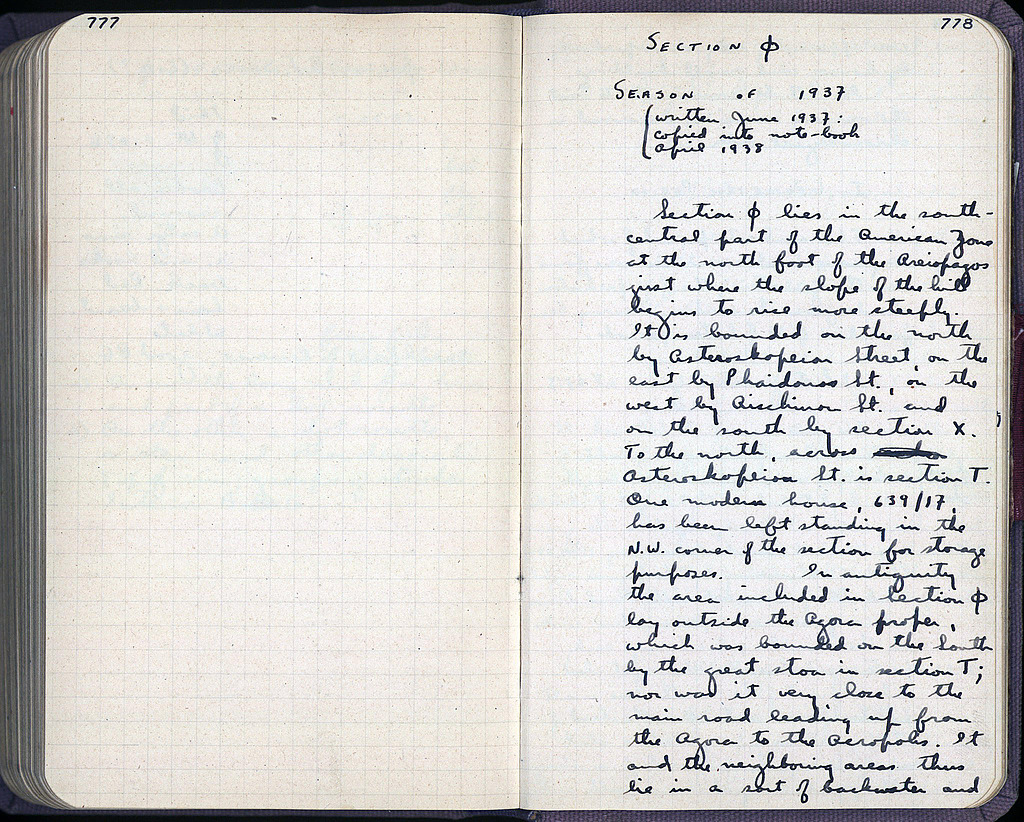 777
778
SECTION ϕ
SEASON OF 1937
(written June 1937:
copied into note-book
April 1938
Section ϕ lies in the south-
central part of the American Zone
at the north foot of the Areiopagos
just where the slope of the hill
begins to rise more steeply.
It is bounded on the north
by Asteroskopeion Street, on the
east by Phaidonos St., on the
west by Aischinou St. and
on the south by section X.
To the north, across
Asteroskopeion St. is section T.
One modern house, 639/17,
has been left standing in the
N.W. corner of the section for storage
purposes. In antiquity
the area included in Section ϕ
lay outside the Agora proper,
which was bounded on the South
by the great stoa in section T;
nor was it very close to the
main road leading up from
the Agora to the Acropolis. It
and the neighboring areas thus
lie in a sort of backwater and